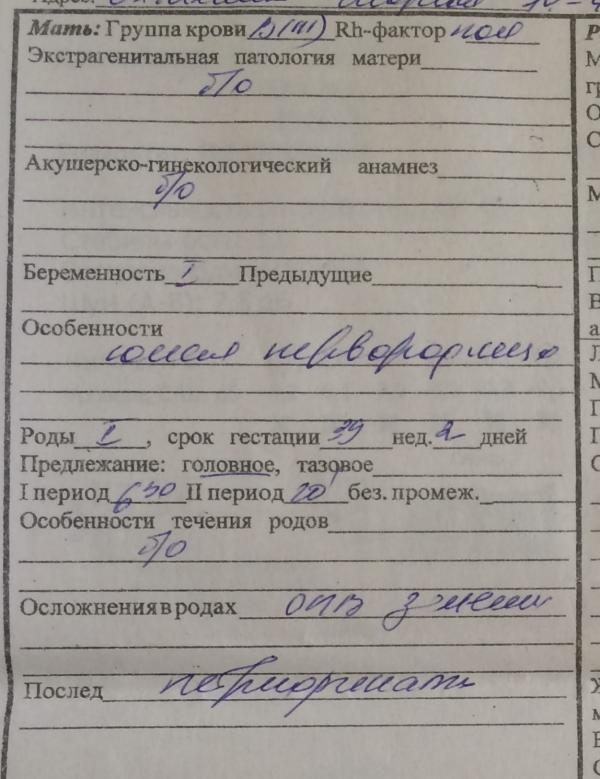 Мать: Группа крови B(III) Rh-фактор пол
Экстрагенитальная патология матери
б/о
Акушерско-гинекологический анамнез
б/о
Беременность I Предыдущие
Особенности
юная первородящая
Роды I, срок гестации 39 нед. 2 дней
Предлежание: головное, тазовое
I период 6 30 II период 20' без. промеж.
Особенности течения родов
б/о
Осложнения в родах ОПВ
Послед